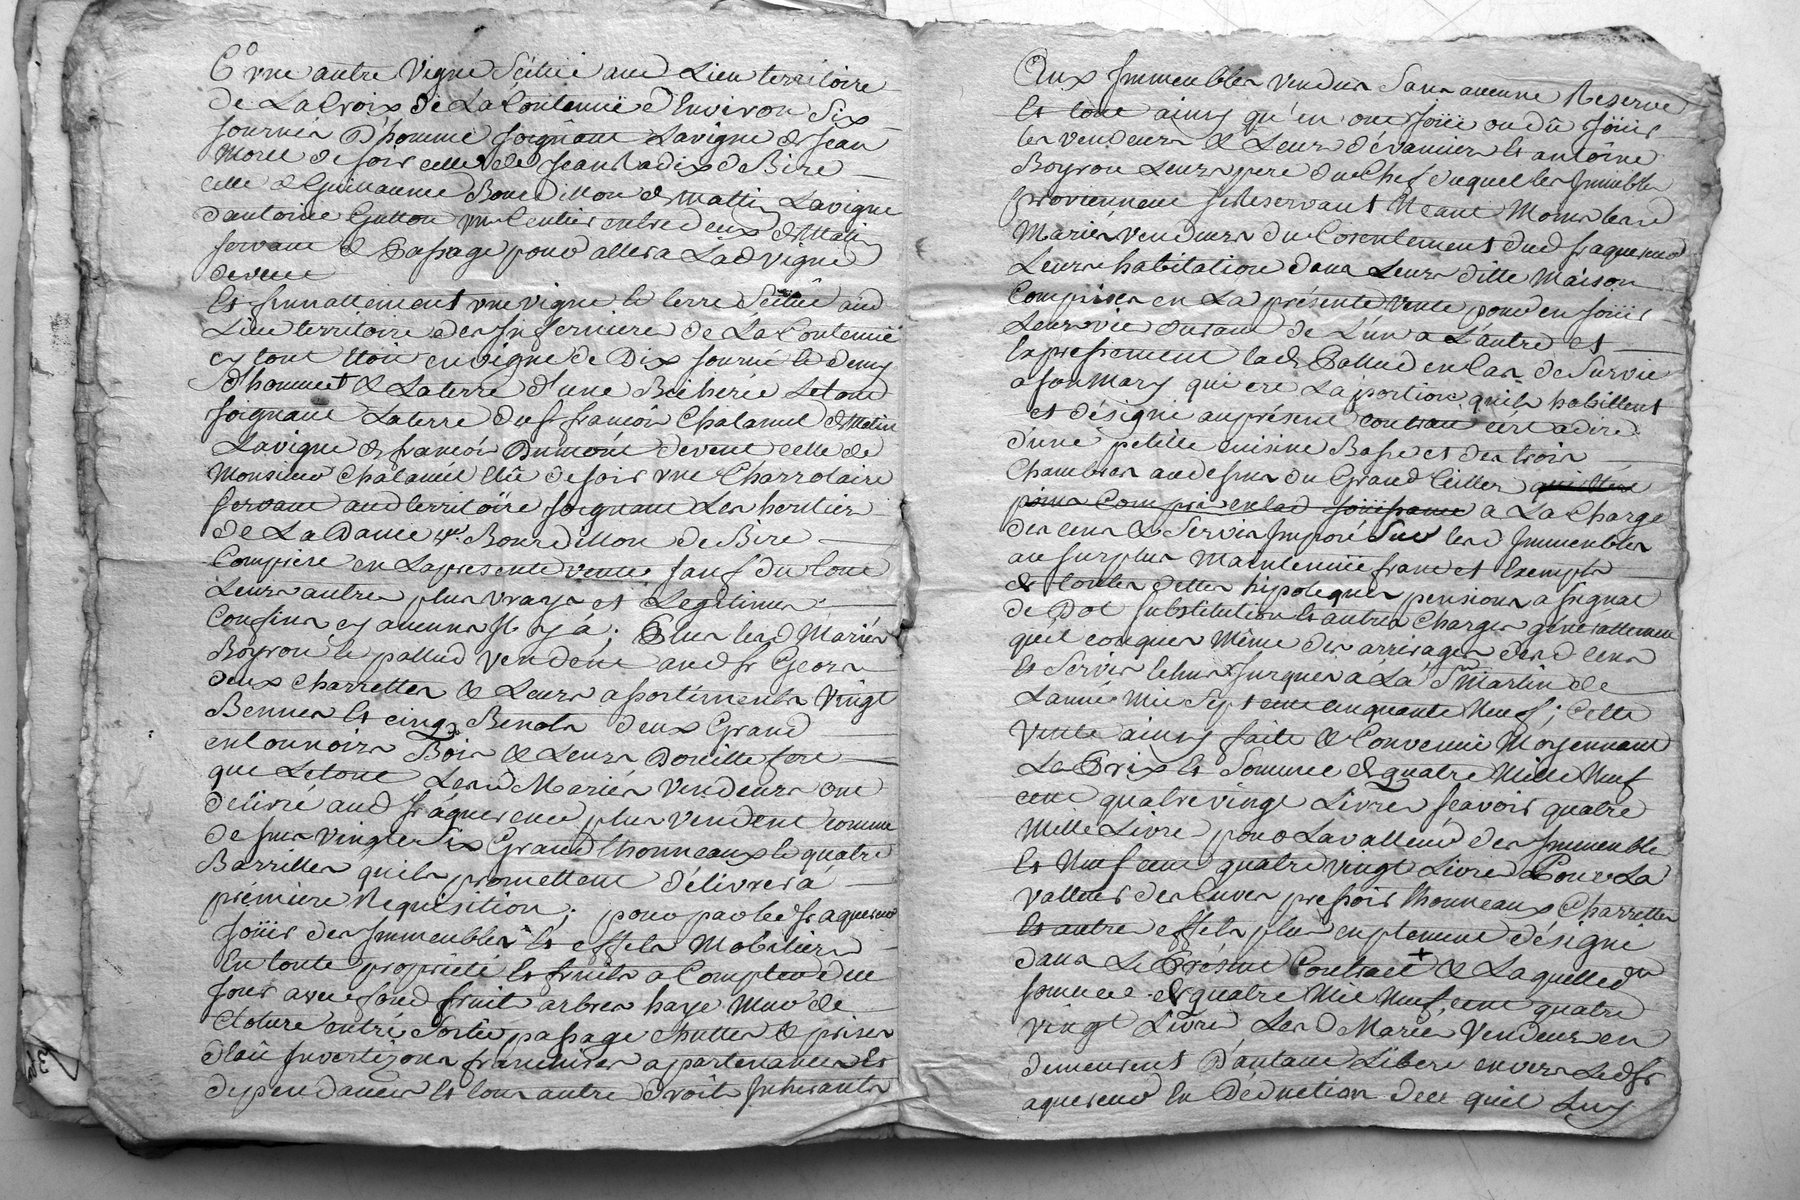 6° une autre Vigne Scituée aud Lieu territoire
de La Croix de La Contennüe d'Environ Six
journés D'homme joignant Lavigne de Jean
Morel de soir celle de Jean Radix de Bize
celle de Guillaume Bourdillon de Matin Lavigne
d'antoine Gutton un Sentier entredeux de Matin
servant de Passage pour aller a Lad vigne
devere
Et finnallement une vigne et terre Scituée aud
Lieu territoire de de La Contennüe
en vigne de Dix journé et demy
d'homme & Laterre d'une Bicherée Letout
joignant Laterre du Sr francois Chalamel de Matin
Lavigne de francois Dumont devent celle de
Monsieur Chalamel Elû de soir une Charrolaire
servant aud territoire joignant Les heritiers
de La Dame Ve. Bourdillon de Bize
Comprise en Lapresente vente sauf du tout
Leurs autres plus vrays et Legitimes
Confins sy aucuns Il y à ; Plus lesd Mariés
Boyron et pallud Vendent aud Sr
deux Charrettes & Leurs assortiments Vingt
Bennes et cinq Benots deux Grand
entonnoirs Bois & Leurs Douille fere
que Letout Lesd Mariés Vendeurs ont
delivré aud Sr aquereur, plus vendent comme
dessus vingt et six Grand thonneaux et quatre
Barrilles qu'ils promettent délivrer à
prémiere Requisition ; pour par led Sr aquereur
jouir des Immeubles et effets Mobiliers
En toute propriété et fruits a Compter du
jour avec fond fruit arbres haye Mur de
Cloture entré Sortie passage Chuttes & prises
d'eau franchises appartenances et
dependances et tous autre droits Inherants
Aux Immeubles vendus Sans aucune Reserve
Et tout ainsy qu'en ont joüi ou dû joüir
les vendeurs & Leurs dévanciers et antoine
Boyron Leurs pere du Chef duquel les Immeubles
proviennent se Reservant Neant Moins lesd
Mariés vendeurs du Consentement dud Sr aquereur
Leurs habitation dans Leurs ditte Maison
Comprise en La présente vente pour en joüir
Leur vie durant de L'un a L'autre et
Expressement lad Pallud en Cas de Survie
a son Mary qui est La portion qu'ils habittent
et désigné au présent contrat cest adire
d'une petitte cuisine Basse et des trois
Chambres au dessus du Grand Cüllier
pour Compris en lad joüissance a La Charge
des cens & Servis Imposé Sur lesd Immeubles
au surplus Maintenüe franc et Exempts
de touttes dettes hipoteques pensions assignat
de Dot Substitution et autres Charges génerallement
quel conques Même des arrerages desd cens
Et Servis Echus jusques à La St Martin de
Lanné Mil Sept cent cinquante Neuf ; Cette
Vente ainsy faitte & Convenüe Moyennant
Le Prix et Somme de quatre Mille Neuf
cent quatre vingt Livres sçavoir quatre
Mille Livre pour La valleur des Immeuble
Et Neuf cent quatre vingt Livre Pour La
valleur des Cuves pressoir thonneaux Charrettes
Et autre effets plus emplement désigné
dans Le Présent Contract + & Laquelle d
somme de quatre Mil Neuf cent quatre
vingt Livre Lesd Marié Vendeur en
demeurent D'autant Libere envers Led Sr
aquereur En Deduction de ce quil Luy